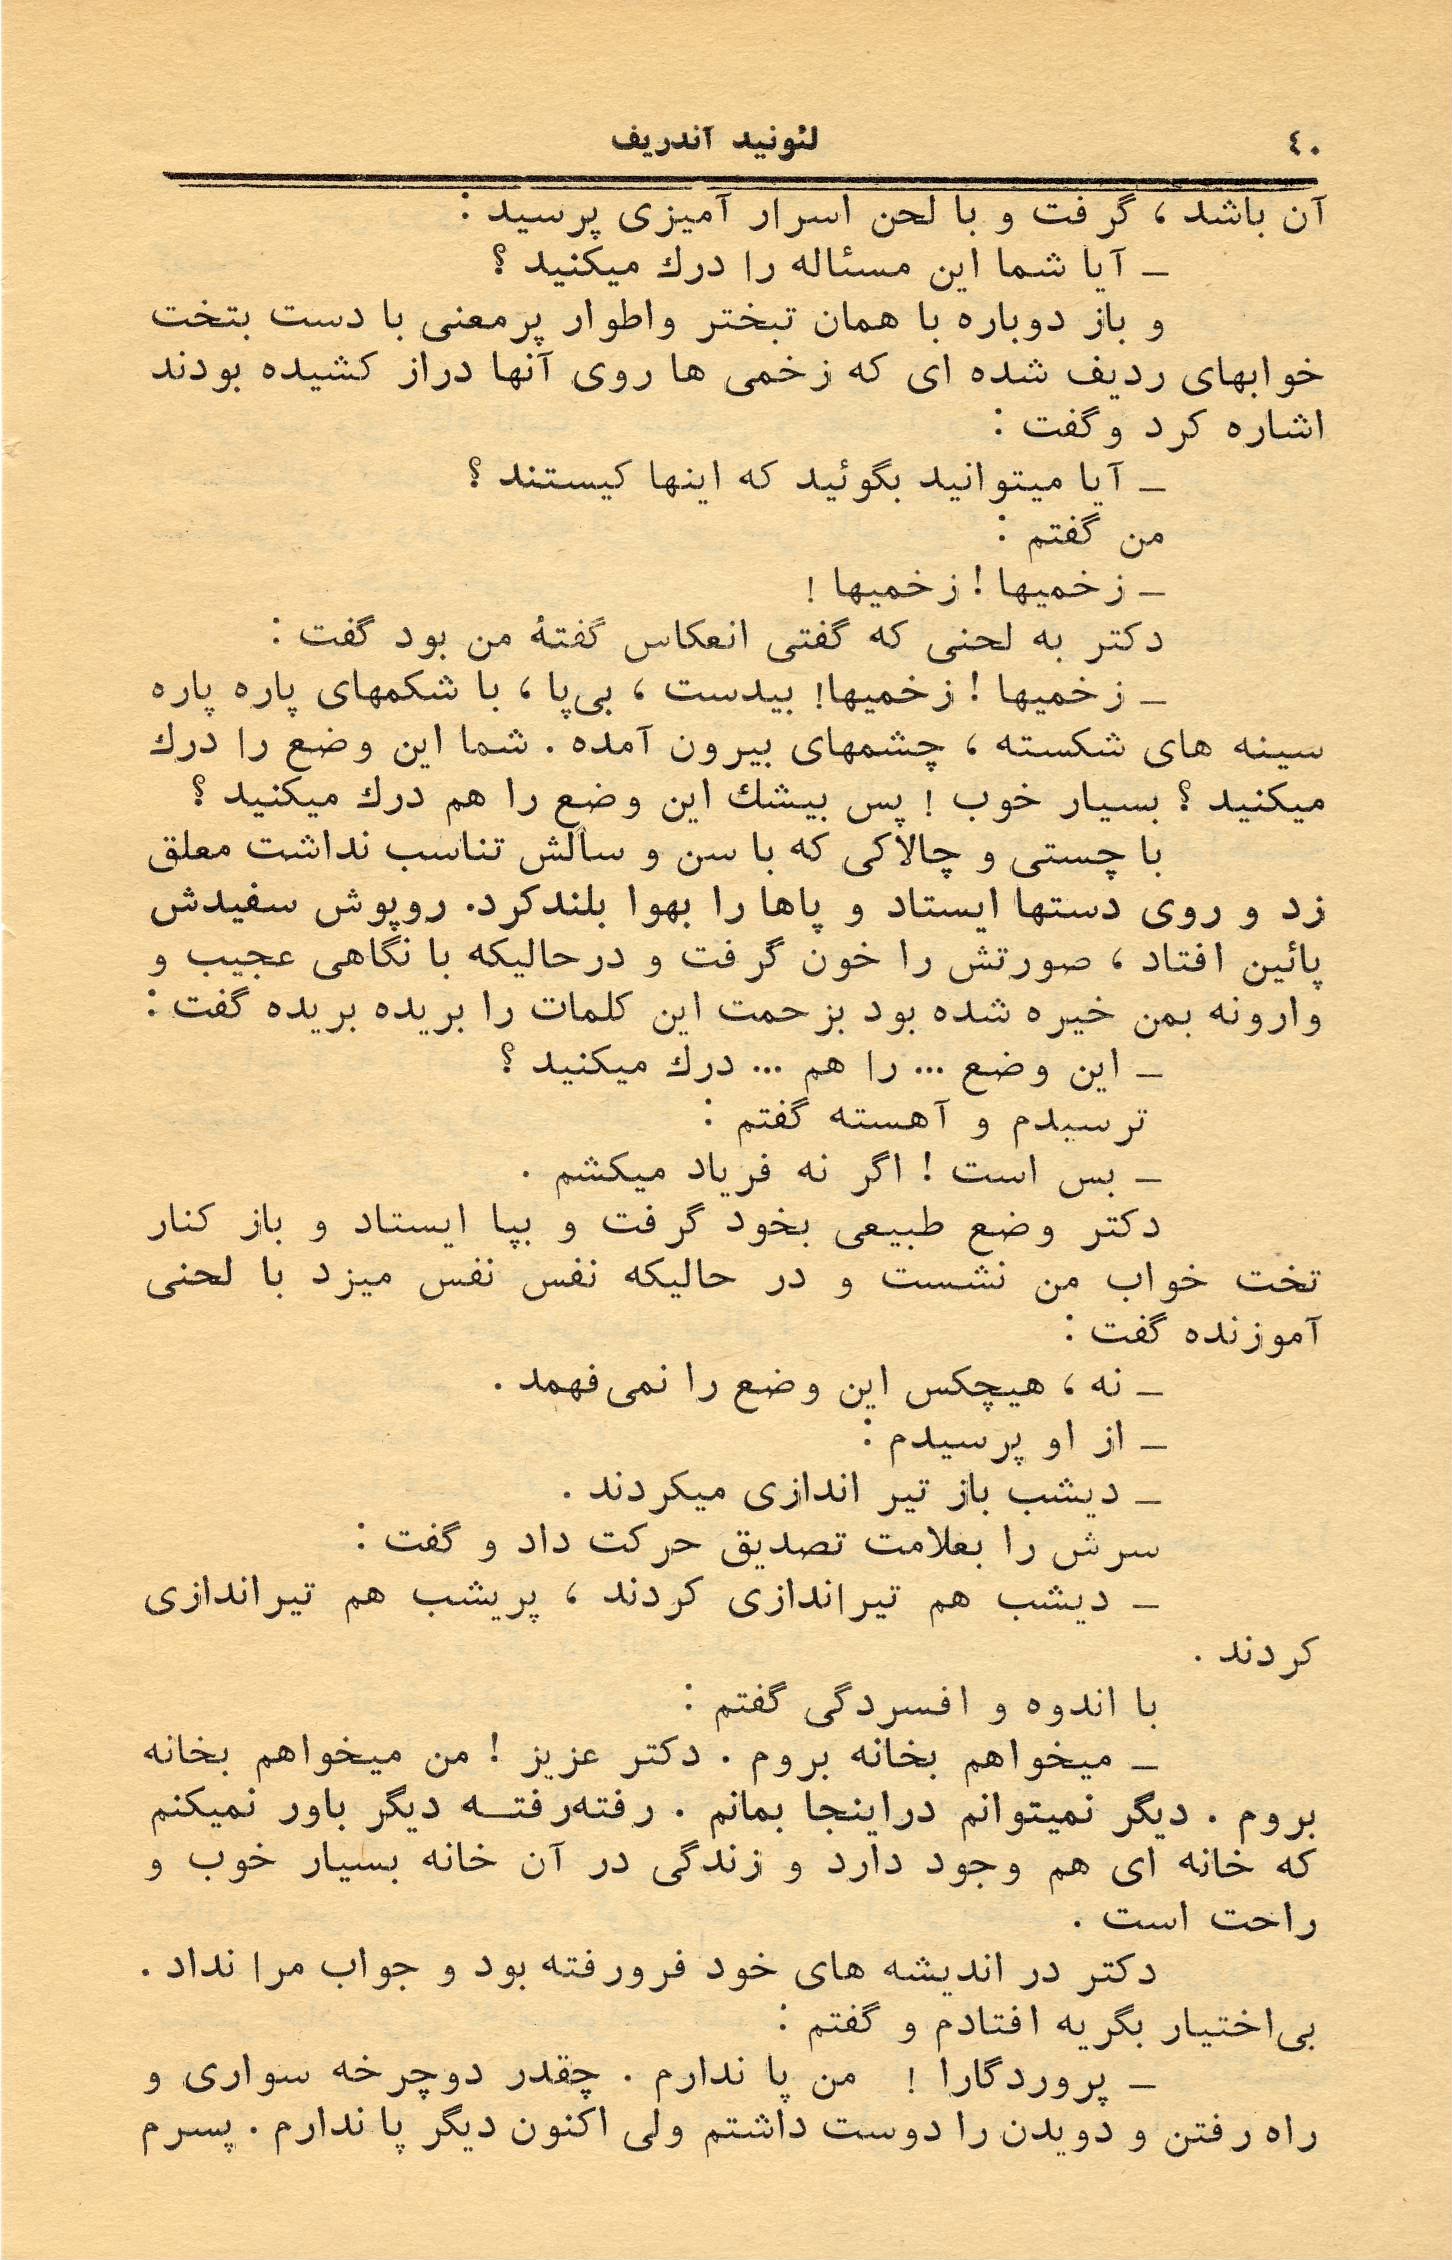 ٤٠
لئونید آندریف
آن باشد ، گرفت و با لحن اسرار آمیزی پرسید :
ـ آیا شما این مسئاله را درك میکنید ؟
و باز دوباره با همان تبختر واطوار پرمعنی با دست بتخت
خوابهای ردیف شده ای که زخمی ها روی آنها دراز کشیده بودند
اشاره کرد وگفت :
ـ آیا میتوانید بگوئید که اینها کیستند ؟
من گفتم :
ـ زخمیها ! زخمیها !
دکتر به لحنی که گفتی انعکاس گفتهٔ من بود گفت :
ـ زخمیها ! زخمیها! بیدست ، بی‌پا ، با شکمهای پاره پاره
سینه های شکسته ، چشمهای بیرون آمده . شما این وضع را درك
میکنید ؟ بسیار خوب ! پس بیشك این وضع را هم درك میکنید ؟
با چستی و چالاکی که با سن و سالش تناسب نداشت معلق
زد و روی دستها ایستاد و پاها را بهوا بلندکرد. روپوش سفیدش
پائین افتاد ، صورتش را خون گرفت و درحالیکه با نگاهی عجیب و
وارونه بمن خیره شده بود بزحمت این کلمات را بریده بریده گفت :
ـ این وضع ... را هم ... درك میکنید ؟
ترسیدم و آهسته گفتم :
ـ بس است ! اگر نه فریاد میکشم .
دکتر وضع طبیعی بخود گرفت و بپا ایستاد و باز کنار
تخت خواب من نشست و در حالیکه نفس نفس میزد با لحنی
آموزنده گفت :
ـ نه ، هیچکس این وضع را نمی‌فهمد .
ـ از او پرسیدم :
ـ دیشب باز تیر اندازی میکردند .
سرش را بعلامت تصدیق حرکت داد و گفت :
ـ دیشب هم تیراندازی کردند ، پریشب هم تیراندازی
کردند .
با اندوه و افسردگی گفتم :
ـ میخواهم بخانه بروم . دکتر عزیز ! من میخواهم بخانه
بروم . دیگر نمیتوانم دراینجا بمانم . رفته‌رفتـه دیگر باور نمیکنم
که خانه ای هم وجود دارد و زندگی در آن خانه بسیار خوب و
راحت است .
دکتر در اندیشه های خود فرورفته بود و جواب مرا نداد .
بی‌اختیار بگریه افتادم و گفتم :
ـ پروردگارا ! من پا ندارم . چقدر دوچرخه سواری و
راه رفتن و دویدن را دوست داشتم ولی اکنون دیگر پا ندارم . پسرم